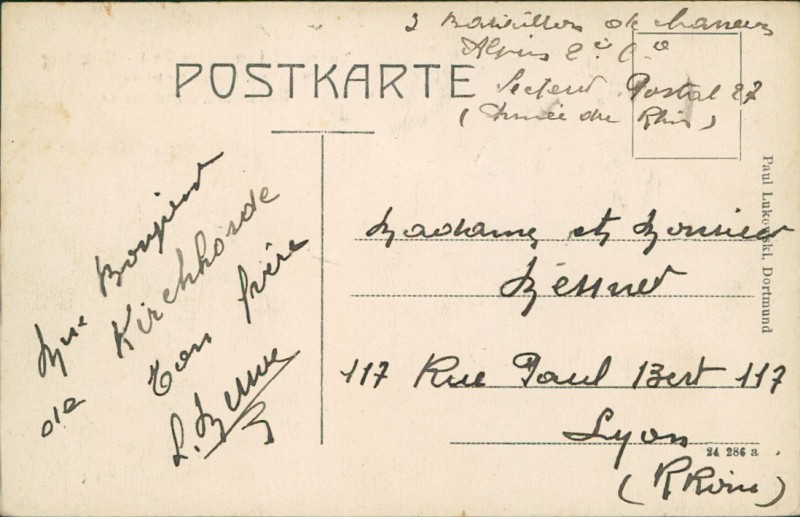 3 Bataillon de chasseurs
Alpins 2e Cie
Secteur Postal 27
(Armée du Rhin)
POSTKARTE
Un Bonjour
de Kirchhörde
ton frère
L.
Madame et Monsieur
117 Rue Paul Bert 117
Lyon
(Rhône)
Paul Lukowski, Dortmund
24 286 a